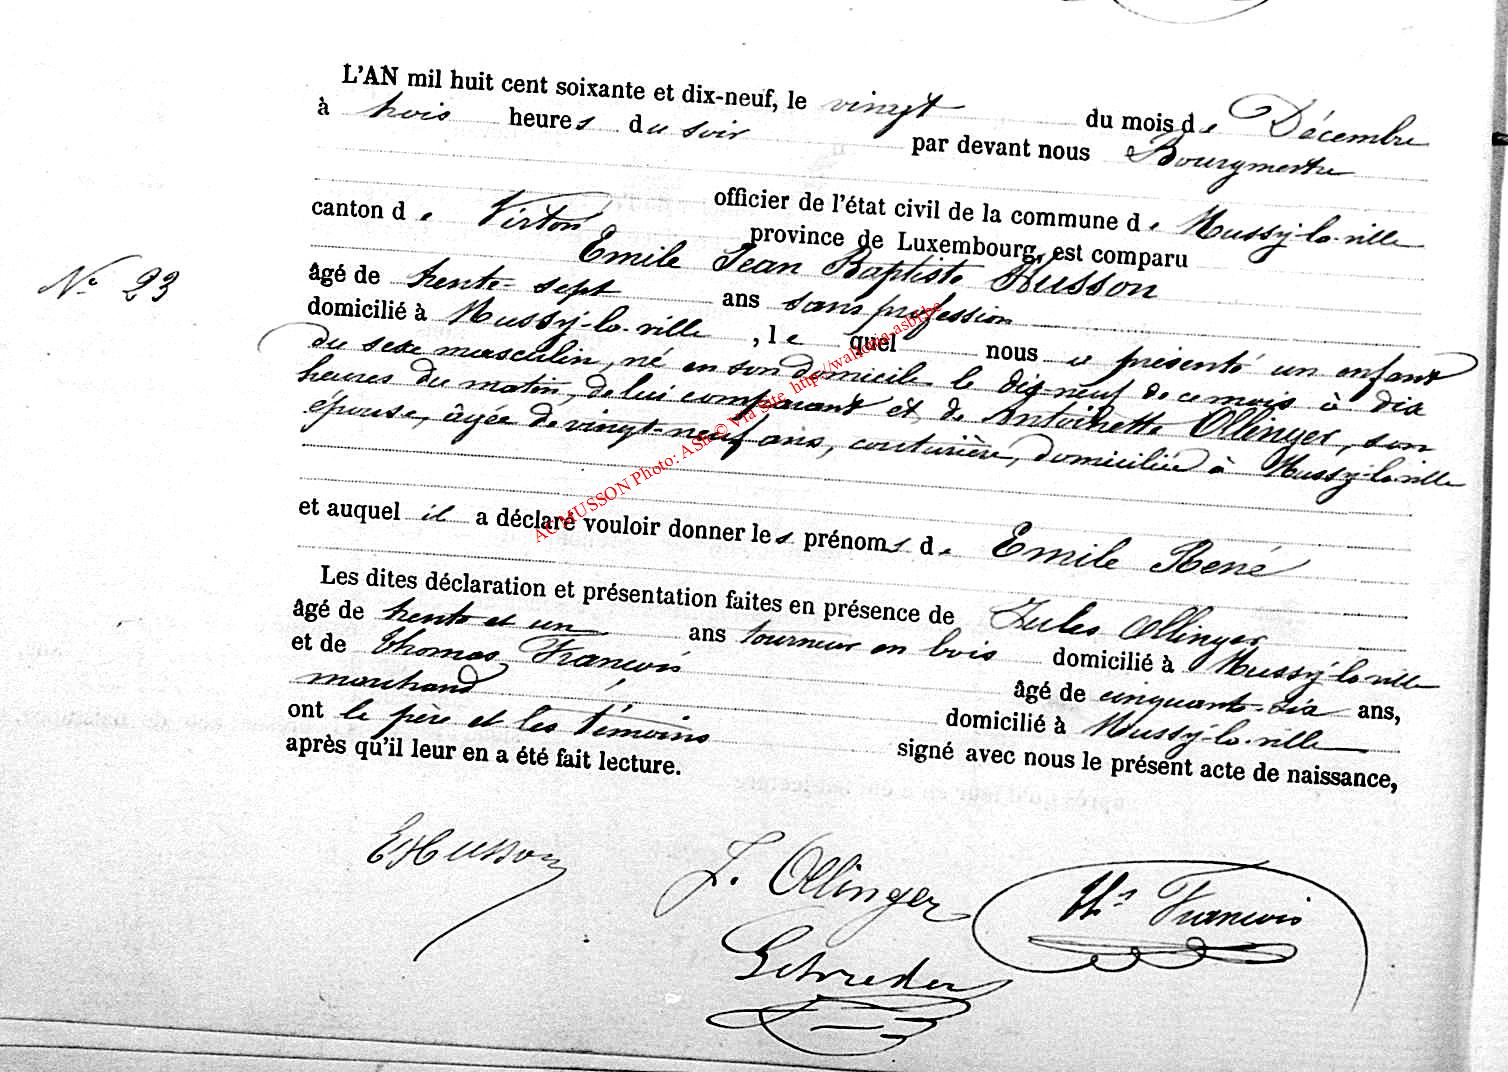 L'AN mil huit cent soixante et dix-neuf, le vingt du mois de Décembre
à trois heures du soir par devant nous Bourgmestre
officier de l'état civil de la commune de Mussy-la-ville
canton de Virton province de Luxembourg, est comparu
Emile Jean Baptiste Husson
No 23
âgé de trente-sept ans sans profession
domicilié à Mussy-la-ville, lequel nous a présenté un enfant
du sexe masculin, né en son domicile le dix-neuf de ce mois à dix
heures du matin, de lui comparant et de Antoinette Ollinger, son
épouse, âgée de vingt-neuf ans, couturière, domiciliée à Mussy-la-ville
et auquel il a déclaré vouloir donner les prénoms de Emile René
Les dites déclaration et présentation faites en présence de Jules Ollinger
âgé de trente et un ans tourneur en bois domicilié à Mussy-la-ville
et de Thomas François âgé de cinquante-six ans,
marchand domicilié à Mussy-la-ville
ont le père et les témoins signé avec nous le présent acte de naissance,
après qu'il leur en a été fait lecture.
EHusson
J. Ollinger
Ths François
AC MUSSON Photo: ASBL © Via Site http://wallonia-asbl.be